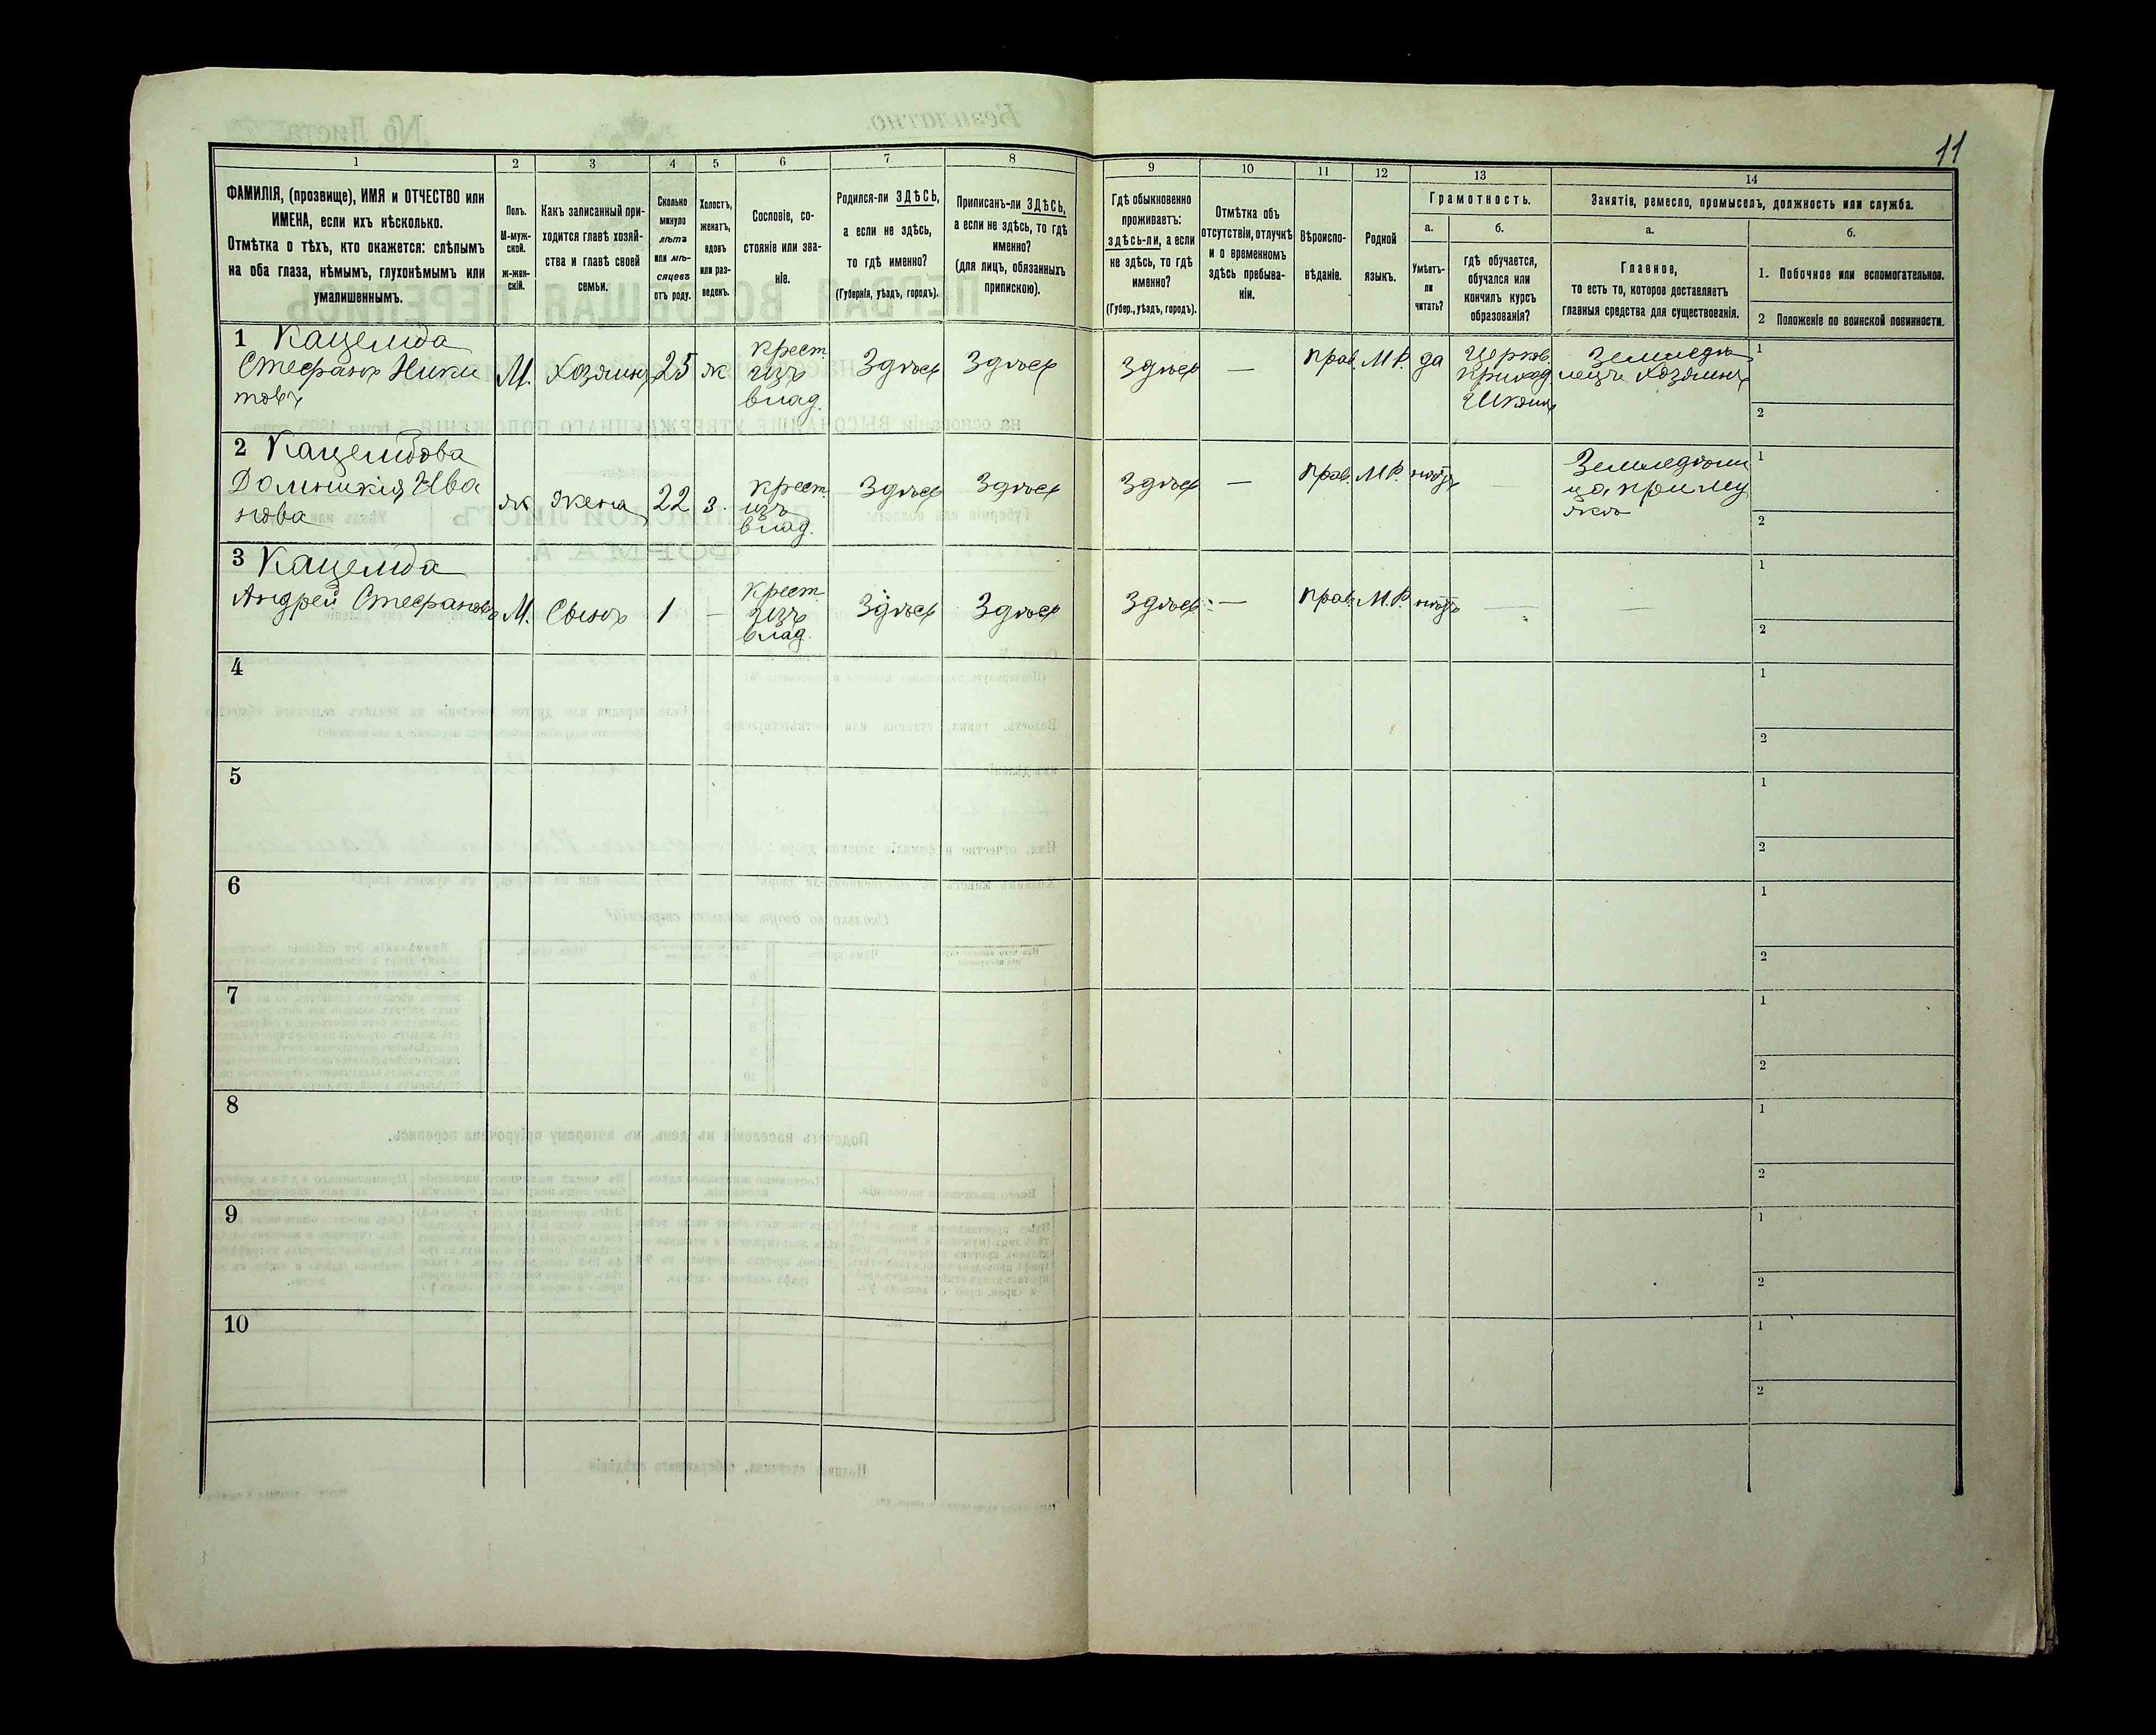 11
1 2 3 4 5 6 7 8 9 10 11 12 13 14
ФАМИЛІЯ, (прозвище), ИМЯ и ОТЧЕСТВО или
ИМЕНА, если ихъ нѣсколько.
Отмѣтка о тѣхъ, кто окажется: слѣпымъ
на оба глаза, нѣмымъ, глухонѣмымъ или
умалишеннымъ.
Полъ.
М-муж-
ской.
ж-жен-
скій.
Какъ записанный при-
ходится главѣ хозяй-
ства и главѣ своей
семьи.
Сколько
минуло
лѣтъ
или мѣ-
сяцевъ
отъ роду.
Холостъ,
женатъ,
вдовъ
или раз-
веденъ.
Сословіе, со-
стояніе или зва-
ніе.
Родился-ли ЗДѢСЬ,
а если не здѣсь,
то гдѣ именно?
(Губернія, уѣздъ, городъ).
Приписанъ-ли ЗДѢСЬ,
а если не здѣсь, то гдѣ
именно?
(для лицъ, обязанныхъ
припискою).
Гдѣ обыкновенно
проживаетъ:
здѣсь-ли, а если
не здѣсь, то гдѣ
именно?
(Губер., уѣздъ, городъ).
Отмѣтка объ
отсутствіи, отлучкѣ
и о временномъ
здѣсь пребыва-
ніи.
Вѣроиспо-
вѣданіе.
Родной
языкъ.
Грамотность.
а.
Умѣетъ-
ли
читать?
б.
гдѣ обучается,
обучался или
кончилъ курсъ
образованія?
Занятіе, ремесло, промыселъ, должность или служба.
а.
Главное,
то есть то, которое доставляетъ
главныя средства для существованія.
б.
1. Побочное или вспомогательное.
2 Положеніе по воинской повинности.
1 Кацемба
Стефанъ Ники
товъ
М.
Хозяинъ
25
ж
крест.
изъ
влад.
Здѣсь
Здѣсь
Здѣсь
—
прав.
М.Р.
да
Церков.
Приход
Школа
Земледѣ
лецъ хозяинъ
1
2
2 Кацембова
Домникія Ива
нова
ж
жена
22
з.
крест.
изъ
влад.
Здѣсь
Здѣсь
Здѣсь
—
прав.
М.Р.
нѣтъ
—
Земледѣли
ца при му
жѣ
1
2
3 Кацемба
Андрей Стефановъ
М.
Сынъ
1
—
крест.
изъ
влад.
Здѣсь
Здѣсь
Здѣсь
—
прав.
М.Р.
нѣтъ
—
—
1
2
4
1
2
5
1
2
6
1
2
7
1
2
8
1
2
9
1
2
10
1
2